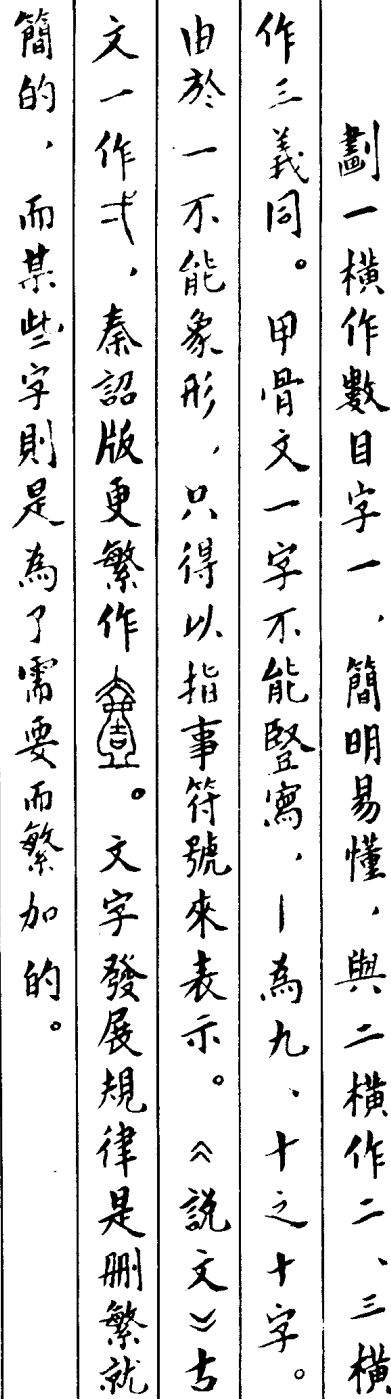 劃一橫作數目字一，簡明易懂，與二橫作二、三橫
作三義同。甲骨文一字不能豎寫，丨為九、十之十字。
由於一不能象形，只得以指事符號來表示。《說文》古
文一作弌，秦詔版更繁作壹。文字發展規律是刪繁就
簡的，而某些字則是為了需要而繁加的。